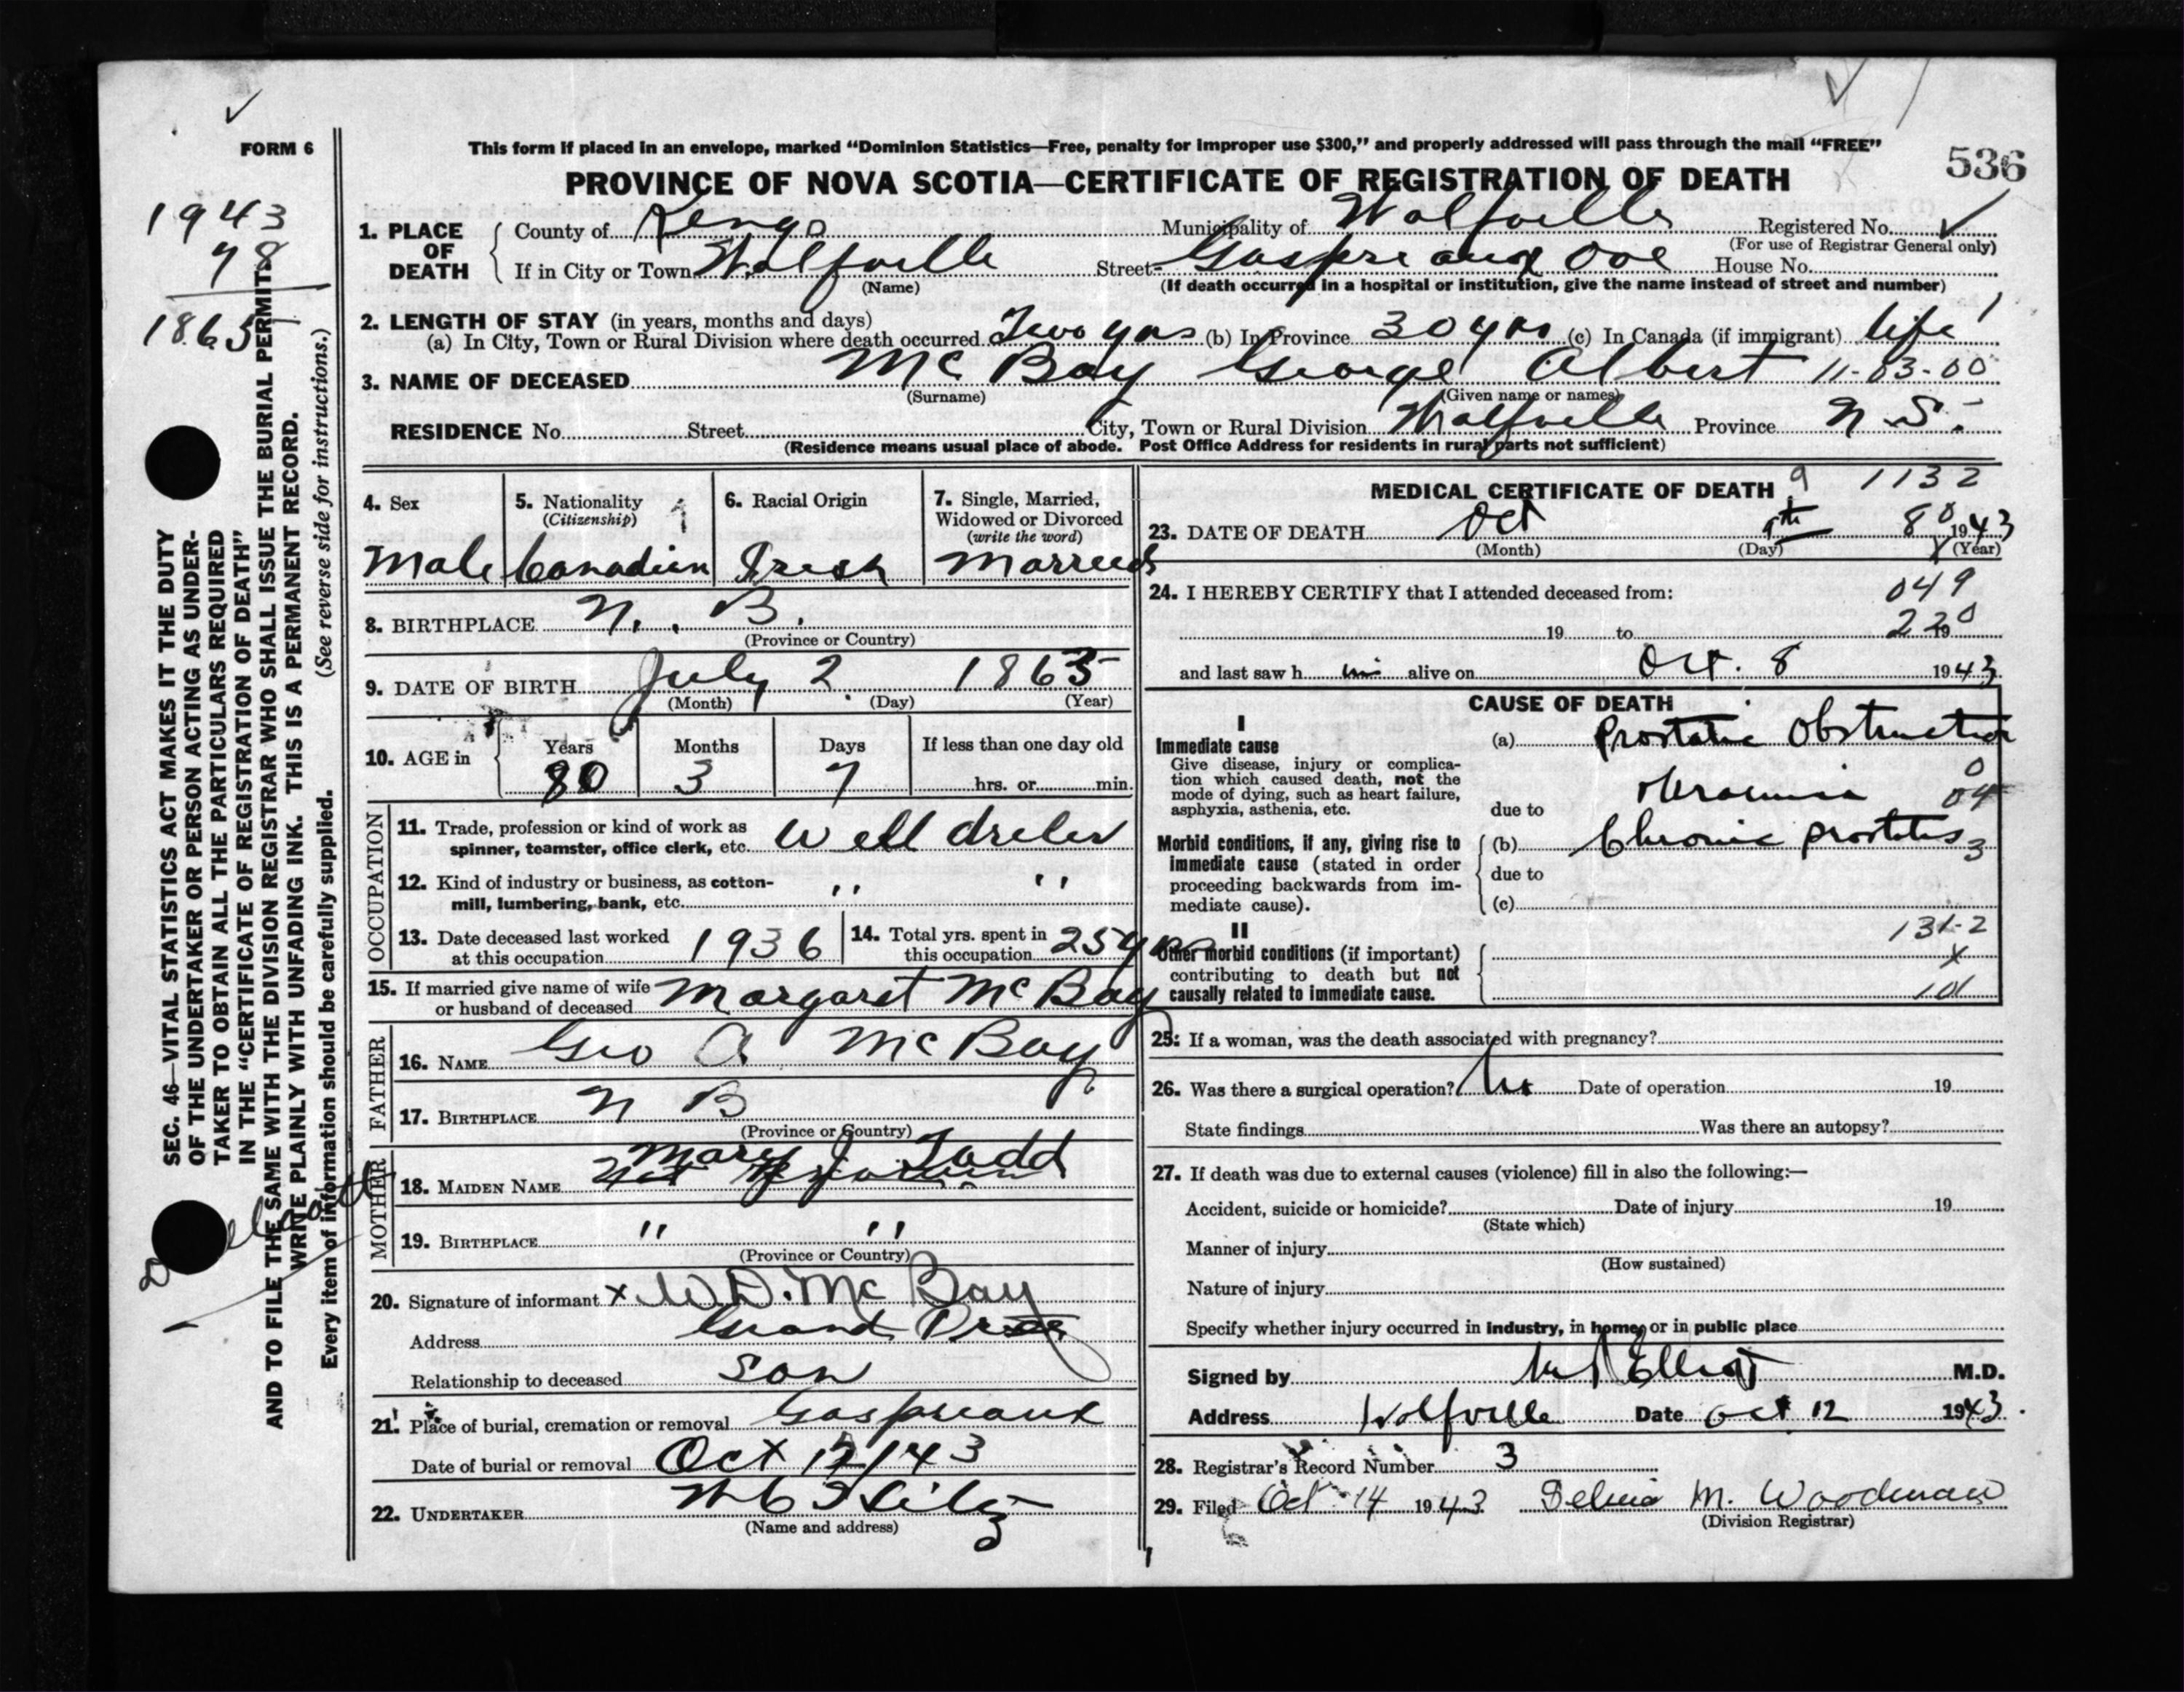 FORM 6
This form if placed in an envelope, marked "Dominion Statistics—Free, penalty for improper use $300," and properly addressed will pass through the mail "FREE"
PROVINCE OF NOVA SCOTIA—CERTIFICATE OF REGISTRATION OF DEATH
536
1943
78
1865
SEC. 46—VITAL STATISTICS ACT MAKES IT THE DUTY
OF THE UNDERTAKER OR PERSON ACTING AS UNDER-
TAKER TO OBTAIN ALL THE PARTICULARS REQUIRED
IN THE "CERTIFICATE OF REGISTRATION OF DEATH"
AND TO FILE THE SAME WITH THE DIVISION REGISTRAR WHO SHALL ISSUE THE BURIAL PERMIT.
WRITE PLAINLY WITH UNFADING INK. THIS IS A PERMANENT RECORD.
Every item of information should be carefully supplied. (See reverse side for instructions.)
1. PLACE OF DEATH
County of Kings Municipality of Wolfville Registered No.
(For use of Registrar General only)
If in City or Town Wolfville Street Gaspreaux Ave House No.
(Name)
(If death occurred in a hospital or institution, give the name instead of street and number)
2. LENGTH OF STAY (in years, months and days)
(a) In City, Town or Rural Division where death occurred Two yrs (b) In Province 30 yrs (c) In Canada (if immigrant) life
3. NAME OF DECEASED Mc Bay George Albert 11-83-00
(Surname) (Given name or names)
RESIDENCE No. Street City, Town or Rural Division Wolfville Province N.S.
(Residence means usual place of abode. Post Office Address for residents in rural parts not sufficient)
4. Sex
Male
5. Nationality
(Citizenship)
Canadian
6. Racial Origin
Irish
7. Single, Married,
Widowed or Divorced
(write the word)
Married
8. BIRTHPLACE N. B.
(Province or Country)
9. DATE OF BIRTH July 2 1863
(Month) (Day) (Year)
10. AGE in
Years Months Days If less than one day old
80 3 7 hrs. or min.
OCCUPATION
11. Trade, profession or kind of work as
spinner, teamster, office clerk, etc. Well dreler
12. Kind of industry or business, as cotton-
mill, lumbering, bank, etc. " "
13. Date deceased last worked
at this occupation 1936
14. Total yrs. spent in
this occupation 25 yrs
15. If married give name of wife
or husband of deceased Margaret Mc Bay
FATHER
16. NAME Geo A McBay
17. BIRTHPLACE N B
(Province or Country)
MOTHER
Mary J. Todd
18. MAIDEN NAME Not Known
19. BIRTHPLACE " "
(Province or Country)
20. Signature of informant x W.D. Mc Bay
Address Grand Pre
Relationship to deceased son
21. Place of burial, cremation or removal Gaspreaux
Date of burial or removal Oct 12/43
22. UNDERTAKER
(Name and address)
MEDICAL CERTIFICATE OF DEATH 9 1132
23. DATE OF DEATH Oct 1943
(Month) (Day) (Year)
24. I HEREBY CERTIFY that I attended deceased from: 049
19 to 19 220
and last saw h im alive on Oct. 8 1943
CAUSE OF DEATH
I
Immediate cause
Give disease, injury or complica-
tion which caused death, not the
mode of dying, such as heart failure,
asphyxia, asthenia, etc.
(a) Prostatic Obstruction
due to Uraemia
Morbid conditions, if any, giving rise to
immediate cause (stated in order
proceeding backwards from im-
mediate cause).
(b) Chronic prostatitis
due to
(c)
131-2
II
Other morbid conditions (if important)
contributing to death but not
causally related to immediate cause.
x
101
25: If a woman, was the death associated with pregnancy?
26. Was there a surgical operation? No Date of operation 19
State findings Was there an autopsy?
27. If death was due to external causes (violence) fill in also the following:—
Accident, suicide or homicide? Date of injury 19
(State which)
Manner of injury
(How sustained)
Nature of injury
Specify whether injury occurred in industry, in home, or in public place
Signed by Elliot M.D.
Address Wolfville Date Oct 12 1943.
28. Registrar's Record Number 3
29. Filed Oct 14 1943 M. Woodman
(Division Registrar)